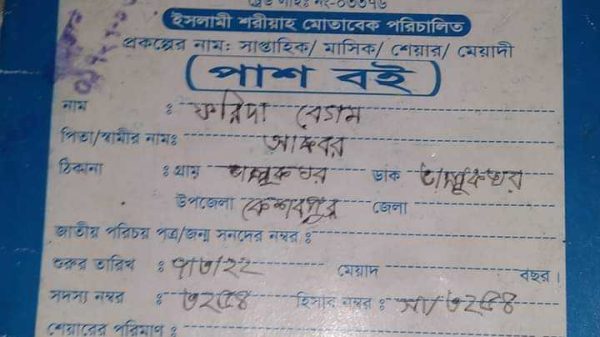 ইসলামী শরীয়াহ মোতাবেক পরিচালিত
প্রকল্পের নাম: সাপ্তাহিক/ মাসিক/ শেয়ার/ মেয়াদী
পাশ বই
নাম : ফরিদা বেগম
পিতা/স্বামীর নামঃ আকবর
ঠিকানা : গ্রাম ডাক
উপজেলা কেশবপুর জেলা
জাতীয় পরিচয় পত্র/জন্ম সনদের নম্বর :
শুরুর তারিখ : মেয়াদ বছর।
সদস্য নম্বর : ৩২৫৪ হিসাব নম্বর : সা/৩২৫৪
শেয়ারের পরিমাণ :